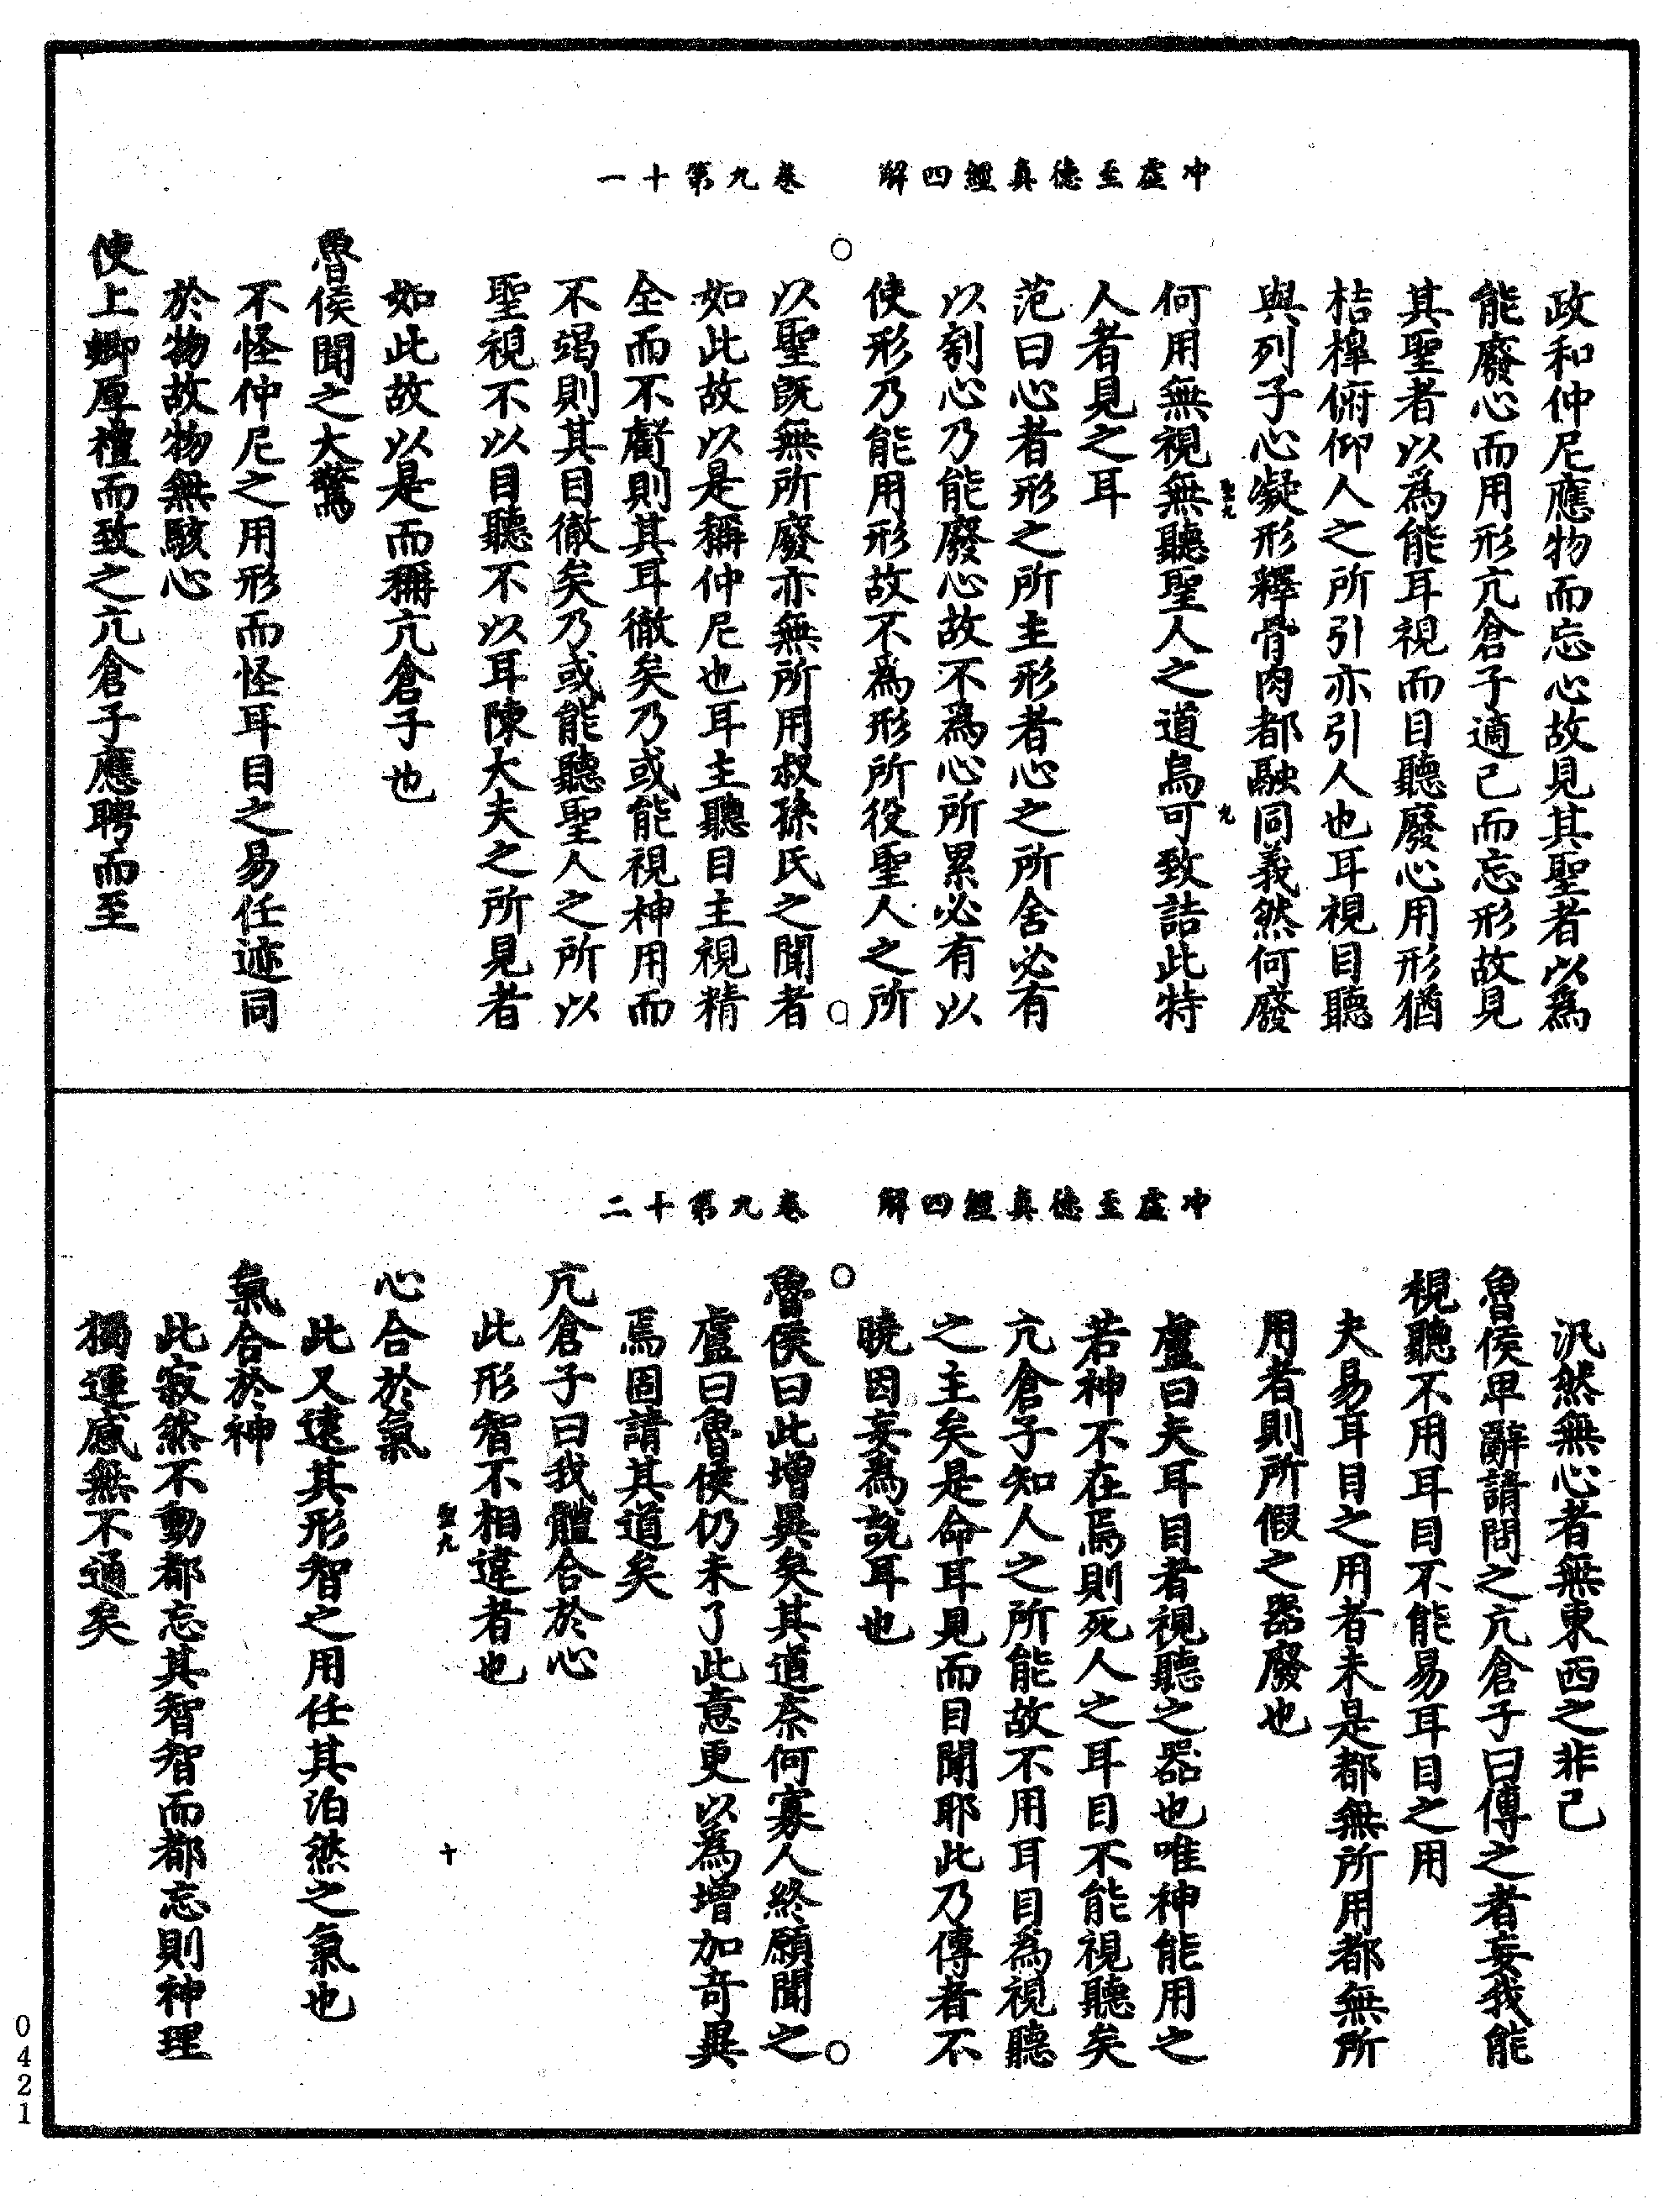 冲虛至德真經四解　卷九第十一
政和仲尼應物而忘心故見其聖者以為
能廢心而用形亢倉子適己而忘形故見
其聖者以為能耳視而目聽廢心用形猶
桔槹俯仰人之所引亦引人也耳視目聽
與列子心凝形釋骨肉都融同義然何廢
何用無視無聽聖人之道烏可致詰此特
聖九
九
人者見之耳
范曰心者形之所主形者心之所舍必有
以刳心乃能廢心故不為心所累必有以
使形乃能用形故不為形所役聖人之所
以聖旣無所廢亦無所用叔孫氏之聞者
如此故以是稱仲尼也耳主聽目主視精
全而不虧則其耳徹矣乃或能視神用而
不竭則其目徹矣乃或能聽聖人之所以
聖視不以目聽不以耳陳大夫之所見者
如此故以是而稱亢倉子也
魯侯聞之大驚
不怪仲尼之用形而怪耳目之易任迹同
於物故物無駭心
使上卿厚禮而致之亢倉子應聘而至
冲虛至德真經四解　卷九第十二
汎然無心者無東西之非己
魯侯卑辭請問之亢倉子曰傳之者妄我能
視聽不用耳目不能易耳目之用
夫易耳目之用者未是都無所用都無所
用者則所假之器廢也
盧曰夫耳目者視聽之器也唯神能用之
若神不在焉則死人之耳目不能視聽矣
亢倉子知人之所能故不用耳目為視聽
之主矣是命耳見而目聞耶此乃傳者不
曉因妄為說耳也
魯侯曰此增異矣其道奈何寡人終願聞之
盧曰魯侯仍未了此意更以為增加奇異
焉固請其道矣
亢倉子曰我體合於心
此形智不相違者也
聖九
十
心合於氣
此又遠其形智之用任其泊然之氣也
氣合於神
此寂然不動都忘其智智而都忘則神理
獨運感無不通矣
0421